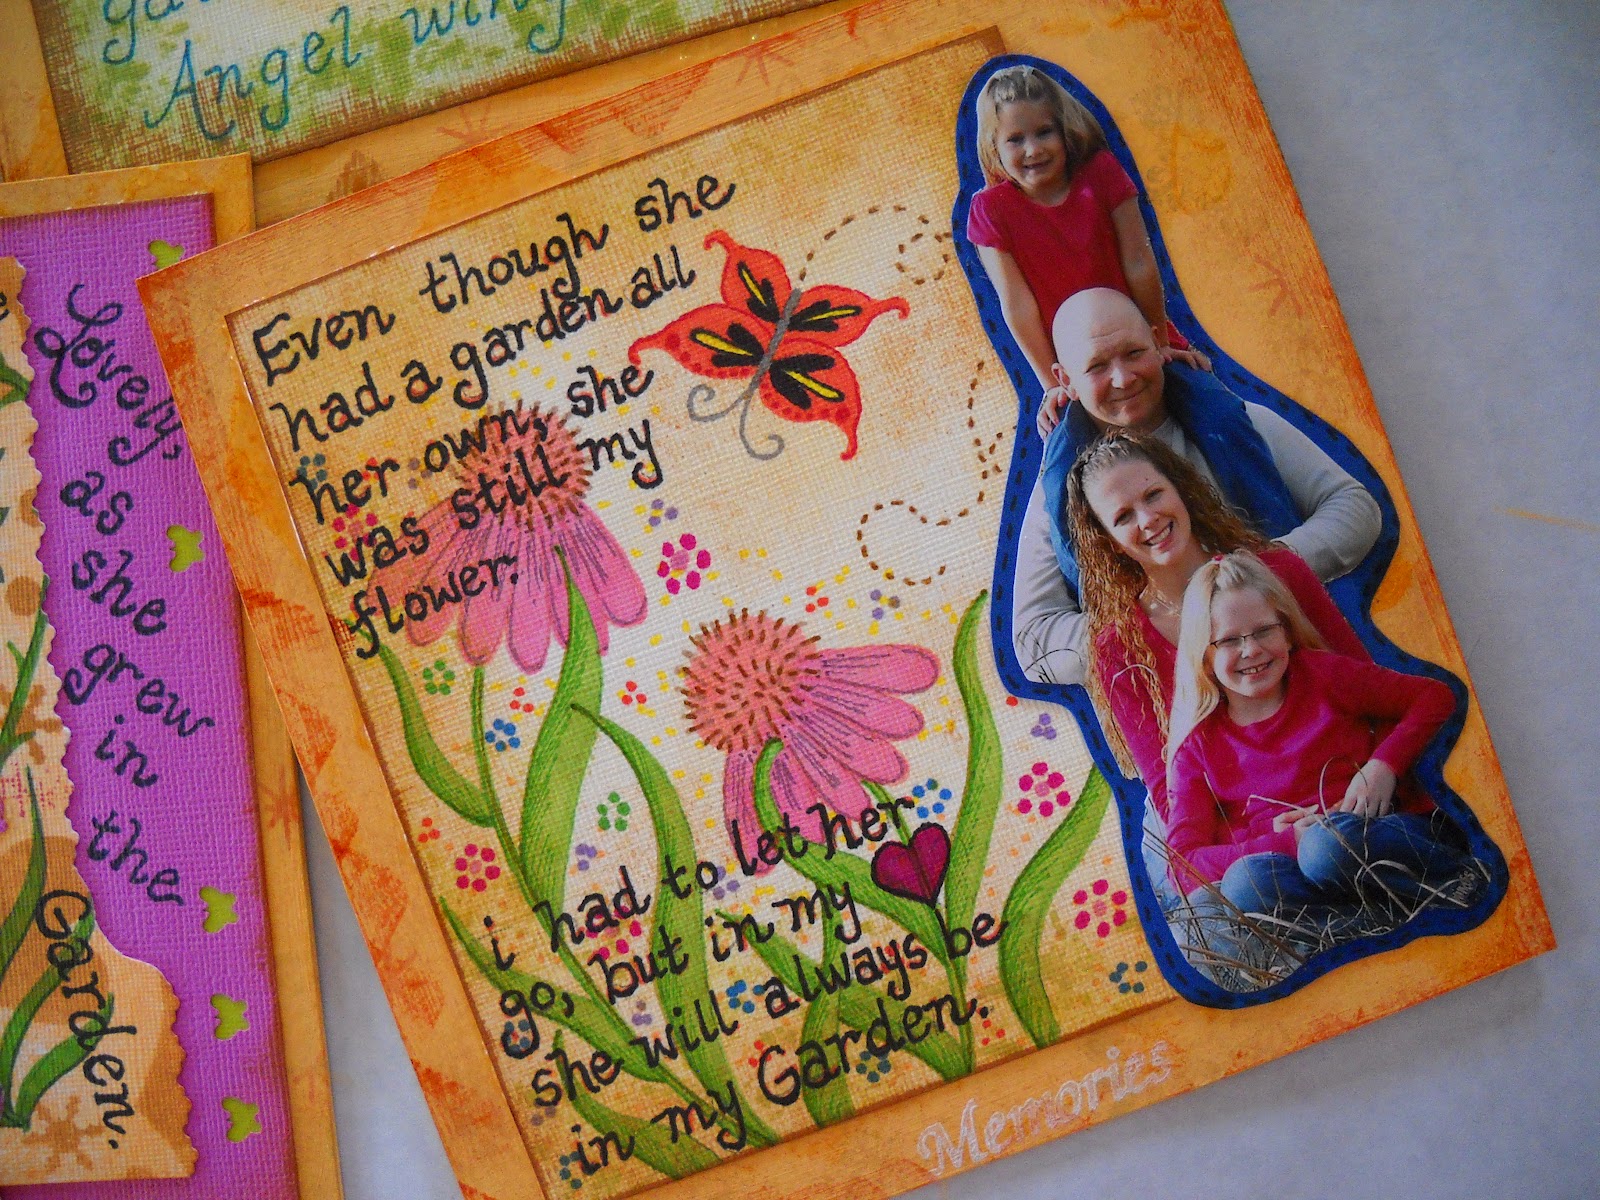 Angel wing
Even though she
had a garden all
her own, she
was still my
flower.
i had to let her
go, but in my
she will always be
in my Garden.
Memories
Lovely,
as
she
grew
in
the
Garden.